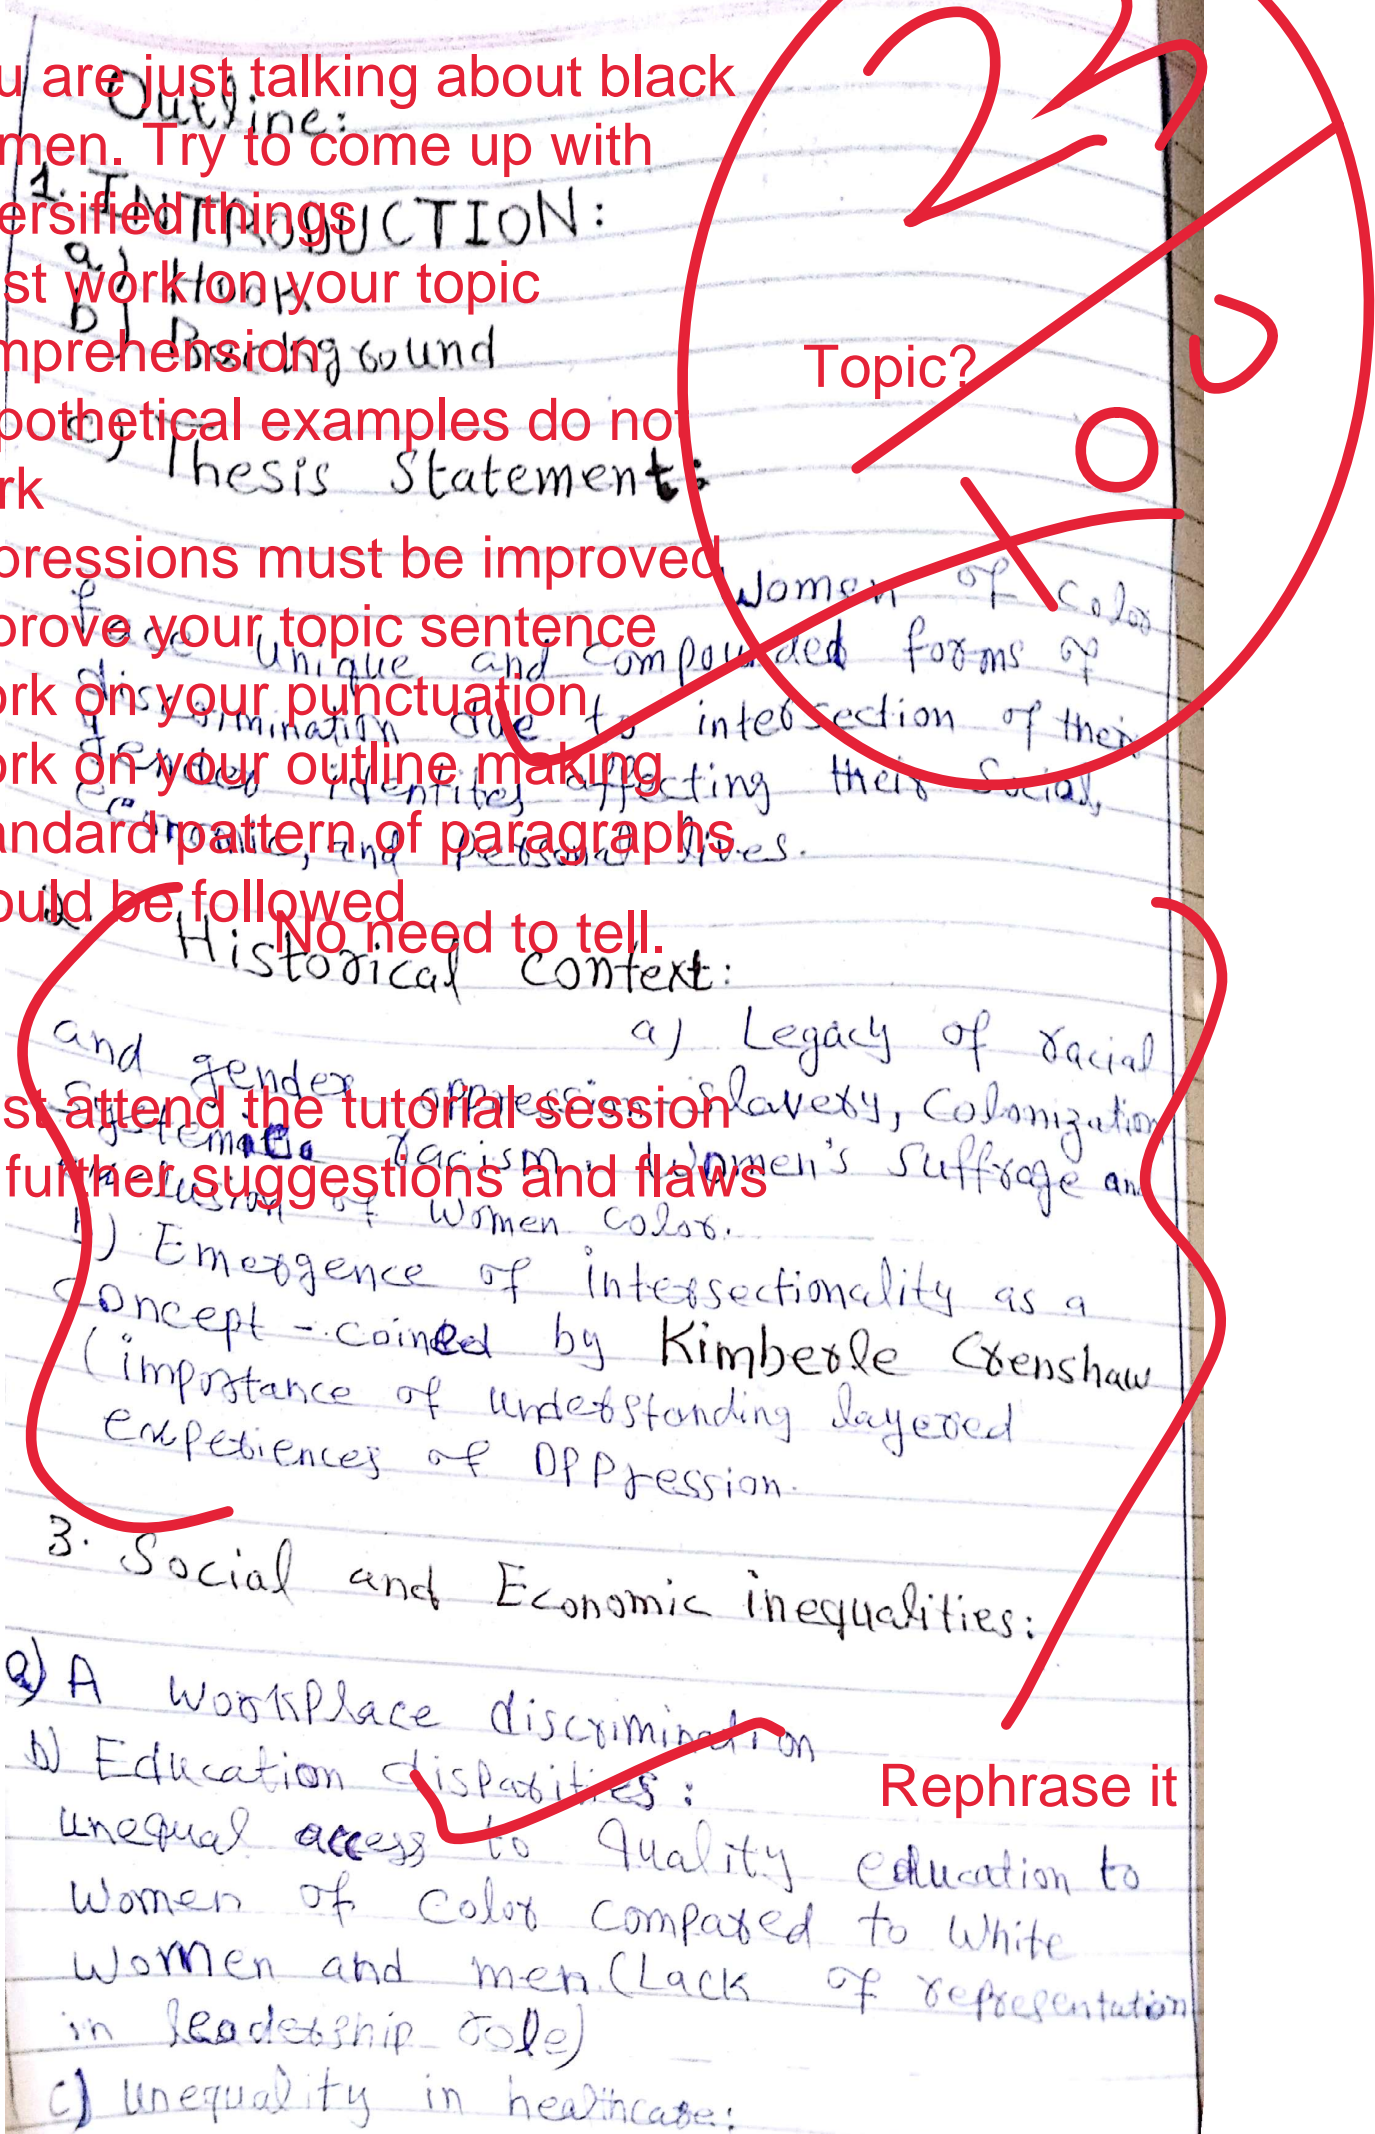 u are just talking about black
men. Try to come up with
ersified things
st work on your topic
mprehension
pothetical examples do not
rk
pressions must be improved
prove your topic sentence
ork on your punctuation
ork on your outline making
andard pattern of paragraphs
ould be followed
No need to tell.
st attend the tutorial session
further suggestions and flaws
Topic?
Rephrase it
Outline:
1. INTRODUCTION:
a) Hook
b) Background
c) Thesis Statement:
Women of Color
face unique and compounded forms of
discrimination due to intersection of their
gender identites affecting their Social,
economic, and Personal lives.
Historical context:
a) Legacy of racial
and gender oppression - Slavery, Colonization
racism. Women's Suffrage an
of Women color.
b) Emergence of intersectionality as a
concept - coined by Kimberle Crenshaw
(importance of understanding layered
experiences of OPPression.
3. Social and Economic inequalities:
a) A WorkPlace discrimination
b) Education disparities:
unequal access to quality education to
Women of Color compared to White
Women and men (Lack of representation
in leadership role)
c) unequality in healthcare: